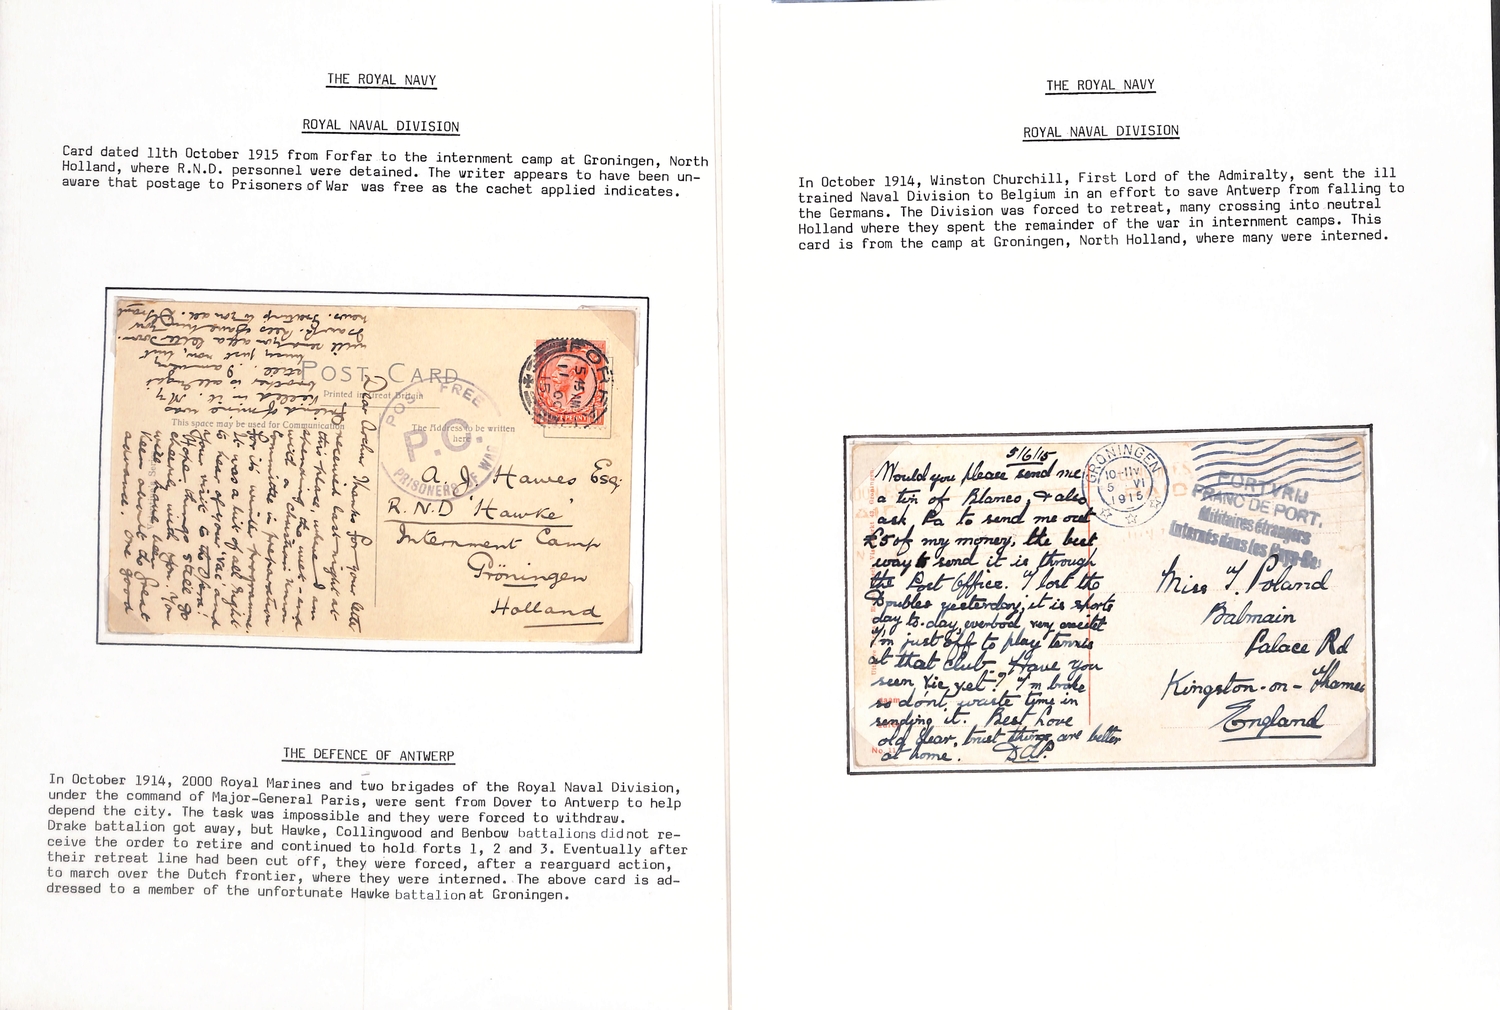 THE ROYAL NAVY
ROYAL NAVAL DIVISION
Card dated 11th October 1915 from Forfar to the internment camp at Groningen, North
Holland, where R.N.D. personnel were detained. The writer appears to have been un-
aware that postage to Prisoners of War was free as the cachet applied indicates.
POST CARD
Printed in Great Britain
This space may be used for Communication
The Address to be written
here
POST FREE
P.O.
PRISONERS OF WAR
FORFAR
5 15 AM
11 OC
15
A. J. Hawes Esq.
R.N.D 'Hawke'
Internment Camp
Gröningen
Holland
Dear Arthur Thanks for your letter
received last night at
this place, where I am
spending the week-end
with a Christian Union
Committee in preparation
for its winter programme.
It was a bit of all right
to hear of your vac and
your visit to the
Hope things still go
cheerily with you. You
will have
been about the Great
advance. One good
friend of mine was
killed in it. My
brother is all right
still. I am
busy just now, but
will send you all a letter soon.
news. Greetings to you all.
THE DEFENCE OF ANTWERP
In October 1914, 2000 Royal Marines and two brigades of the Royal Naval Division,
under the command of Major-General Paris, were sent from Dover to Antwerp to help
depend the city. The task was impossible and they were forced to withdraw.
Drake battalion got away, but Hawke, Collingwood and Benbow battalions did not re-
ceive the order to retire and continued to hold forts 1, 2 and 3. Eventually after
their retreat line had been cut off, they were forced, after a rearguard action,
to march over the Dutch frontier, where they were interned. The above card is ad-
dressed to a member of the unfortunate Hawke battalion at Groningen.
THE ROYAL NAVY
ROYAL NAVAL DIVISION
In October 1914, Winston Churchill, First Lord of the Admiralty, sent the ill
trained Naval Division to Belgium in an effort to save Antwerp from falling to
the Germans. The Division was forced to retreat, many crossing into neutral
Holland where they spent the remainder of the war in internment camps. This
card is from the camp at Groningen, North Holland, where many were interned.
5/6/15
Would you please send me
a tin of Blanco, & also
ask Pa to send me out
£5 of my money, the best
way to send it is through
the Post Office. I lost the
Doubles yesterday, it is sports
day to-day, everbod, very exceitet
I'm just off to play tennis
at that club. Have you
seen Vie yet? I'm broke
so dont waste time in
sending it. Best Love
old dear, trust things are better
at home. D.A.P.
GRONINGEN
10-11V
5 VI
1915
PORTVRIJ
FRANC DE PORT.
Militaires étrangers
Internés dans les Pays-Bas
Miss I. Poland
Balmain
Palace Rd
Kingston-on-Thames
England